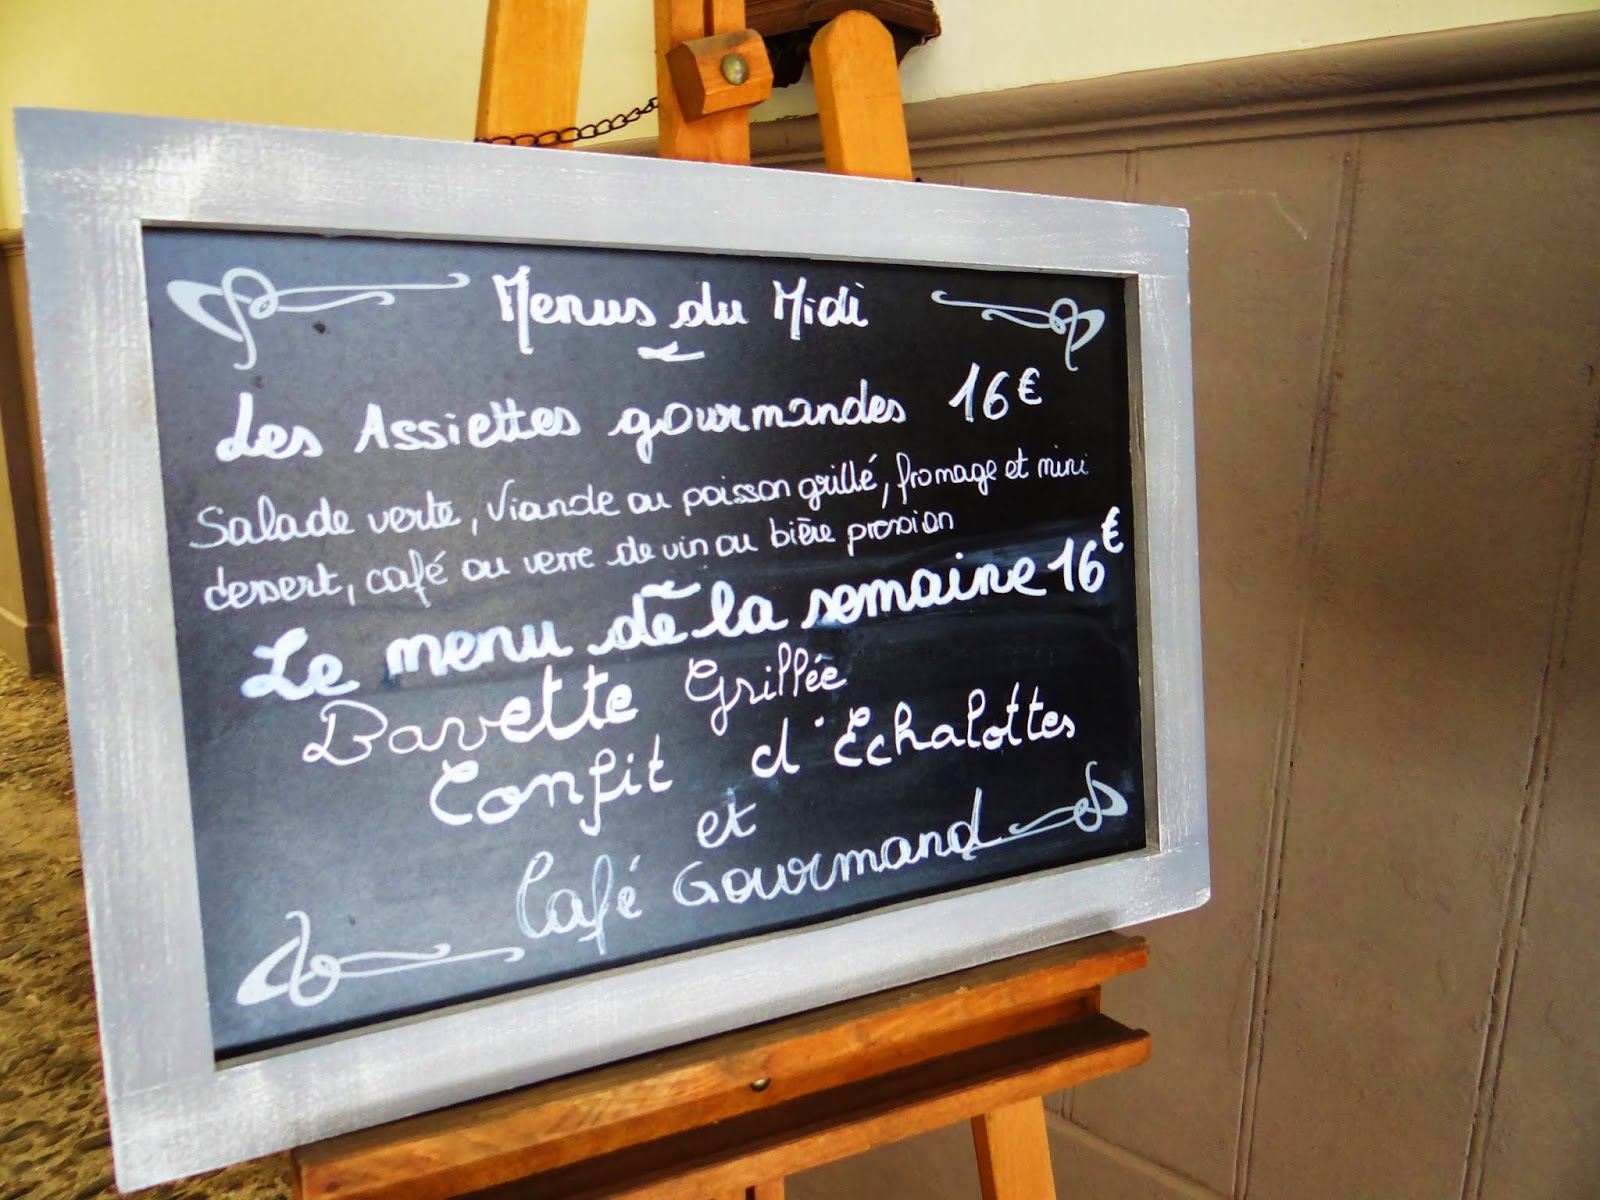 Menus du Midi
Les Assiettes gourmandes 16€
Salade verte, Viande ou poisson grillé, fromage et mini
dessert, café ou verre de vin ou bière pression
Le menu de la semaine 16€
Bavette Grillée
Confit d'Echalottes
et
Café Gourmand